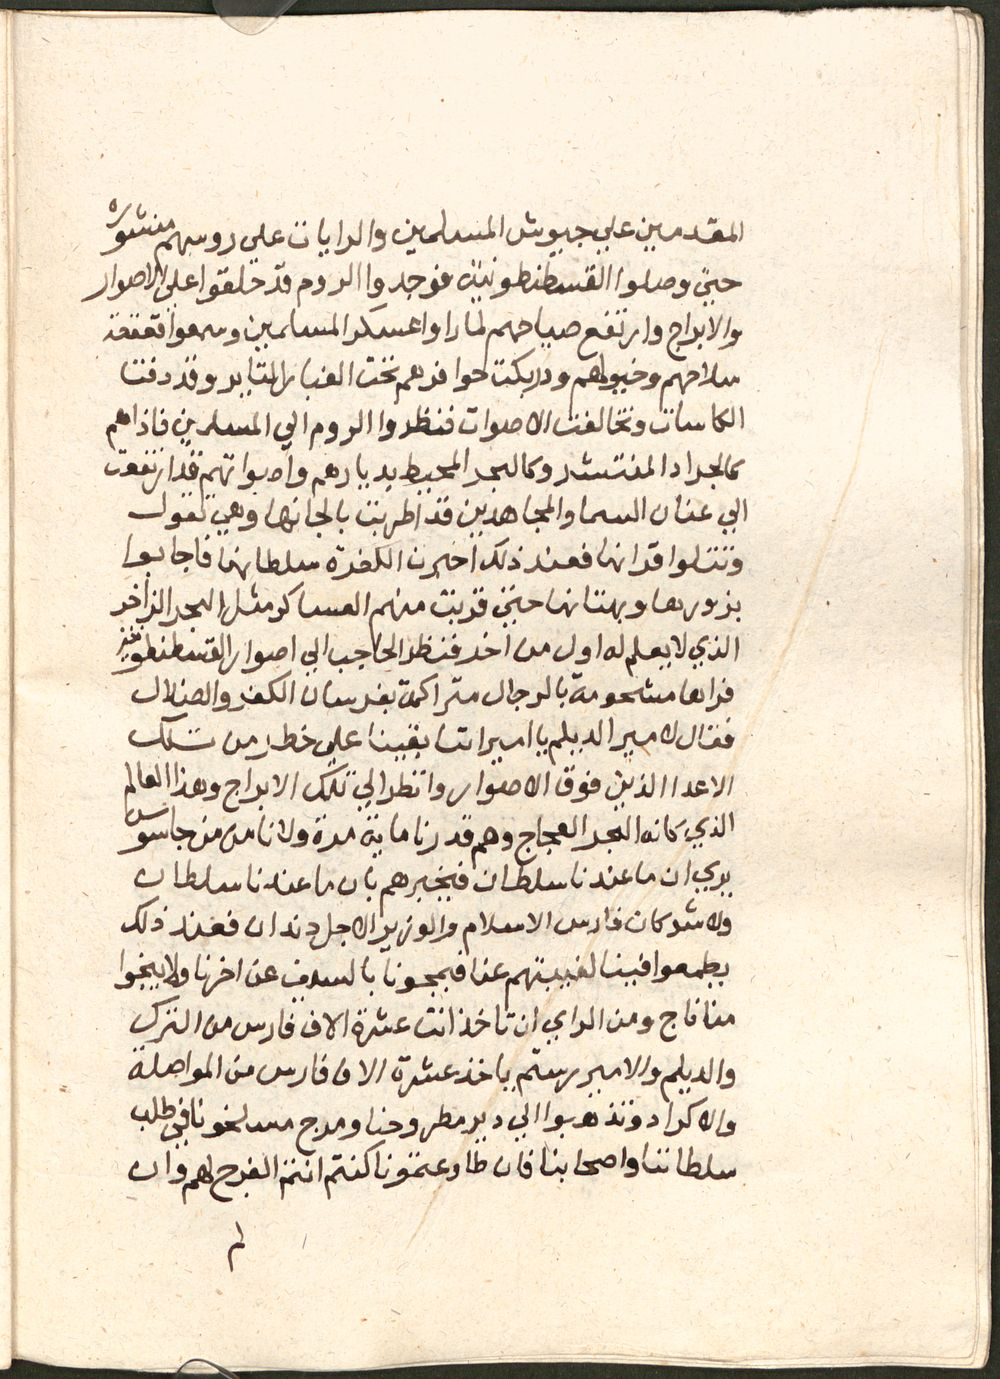 المقدمين علي جيوش المسلمين والرايات علي روسهم منشوره
حتي وصلوا القسطنطونية فوجدوا الروم قد حلقوا علي الاصوار
والابراج وارتفع صياحهم لما راوا عسكر المسلمين وسمعوا قعقعة
سلاحهم وخيولهم ودربكت حوافرهم تحت الغبار الثاير وقد دقت
الكاسات وتخالفت الاصوات فنظروا الروم الي المسلمين فاذا هم
كالجراد المنتشر وكالبحر المحيط بديارهم واصواتهم قد ارتفعت
الي عنان السما والمجاهدين قد اطربت بالحانها وهي تقول
وتتلوا قرانها فعند ذلك اخبرت الكفرة سلطانها فاجابوا
بزورها وبهتانها حتي قربت منهم العساكر مثل البحر الزاخر
الذي لا يعلم له اول من اخر فنظر الحاجب الي اصوار القسطنطونية
فراها مشحونة بالرجال متراكمة بفرسان الكفر والضلال
فقال لامير الديلم يا امير اننا بقينا علي خطر من تلك
الاعدا الذين فوق الاصوار وانظر الي تلك الابراج وهذا العالم
الذي كانه البحر العجاج وهم قدرنا ماية مرة ولا نامن من جاسوس
يري ان ما عندنا سلطان فيخبرهم بان ما عندنا سلطان
ولا شركان فارس الاسلام والوزير الاجل دندان فعند ذلك
يطمعوا فينا لغيبتهم عنا فيمحونا بالسيف عن اخرنا ولا ينجوا
منا ناج ومن الراي ان تاخذ انت عشرة الاف فارس من الترك
والديلم والامير رستم ياخذ عشرة الاف فارس من المواصلة
والاكراد وتذهبوا الي دير مطروحنا ومرج مسلخونا في طلب
سلطاننا واصحابنا فان طاوعتمونا كنتم انتم الفرج لهم وان
لم